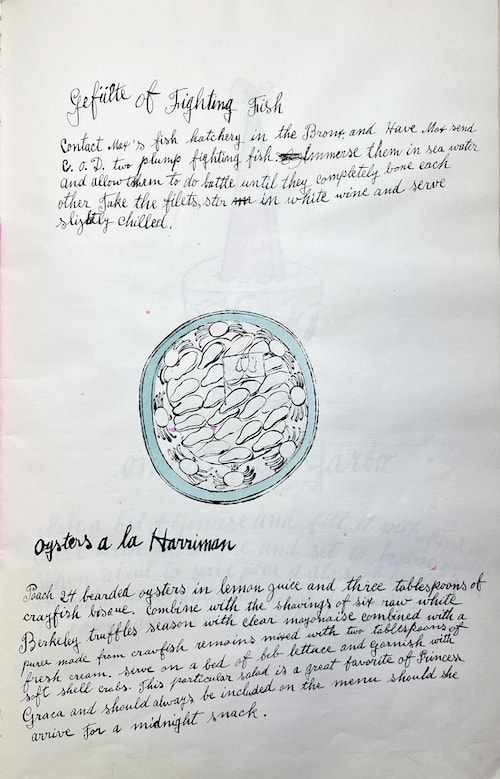 Gefülte of Fighting Fish
Contact Max's fish hatchery in the Bronx and Have Max send
C.O.D. two plump fighting fish. Immerse them in sea water
and allow them to do battle until they completely bone each
other. Take the filets, ster in white wine and serve
slightly chilled.
oysters a la Harriman
Poach 24 bearded oysters in lemon juice and three tablespoons of
crayfish bisque. Combine with the shavings of six raw white
Berkeley truffles season with clear mayonaise combined with a
puree made from crawfish remains mixed with two tablespoons of
fresh cream. serve on a bed of bib lettuce and garnish with
soft shell crabs. This particular salad is a great favorite of Princess
Graca and should always be included on the menu should she
arrive for a midnight snack.